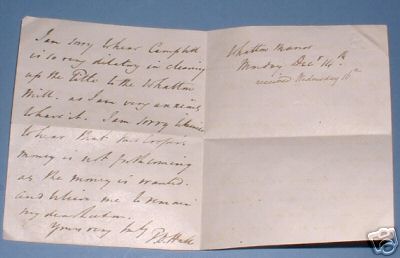 I am sorry to hear Campbell
is so very dilatory in clearing
up the Title to the Whatton
Mill. as I am very anxious
I am sorry likewise
to hear that
money is not forthcoming
as the money is wanted.
and believe me to remain
my dear
Yours very truly
Whatton Manor
Monday Decr 14th
received Wednesday 16th
ebY